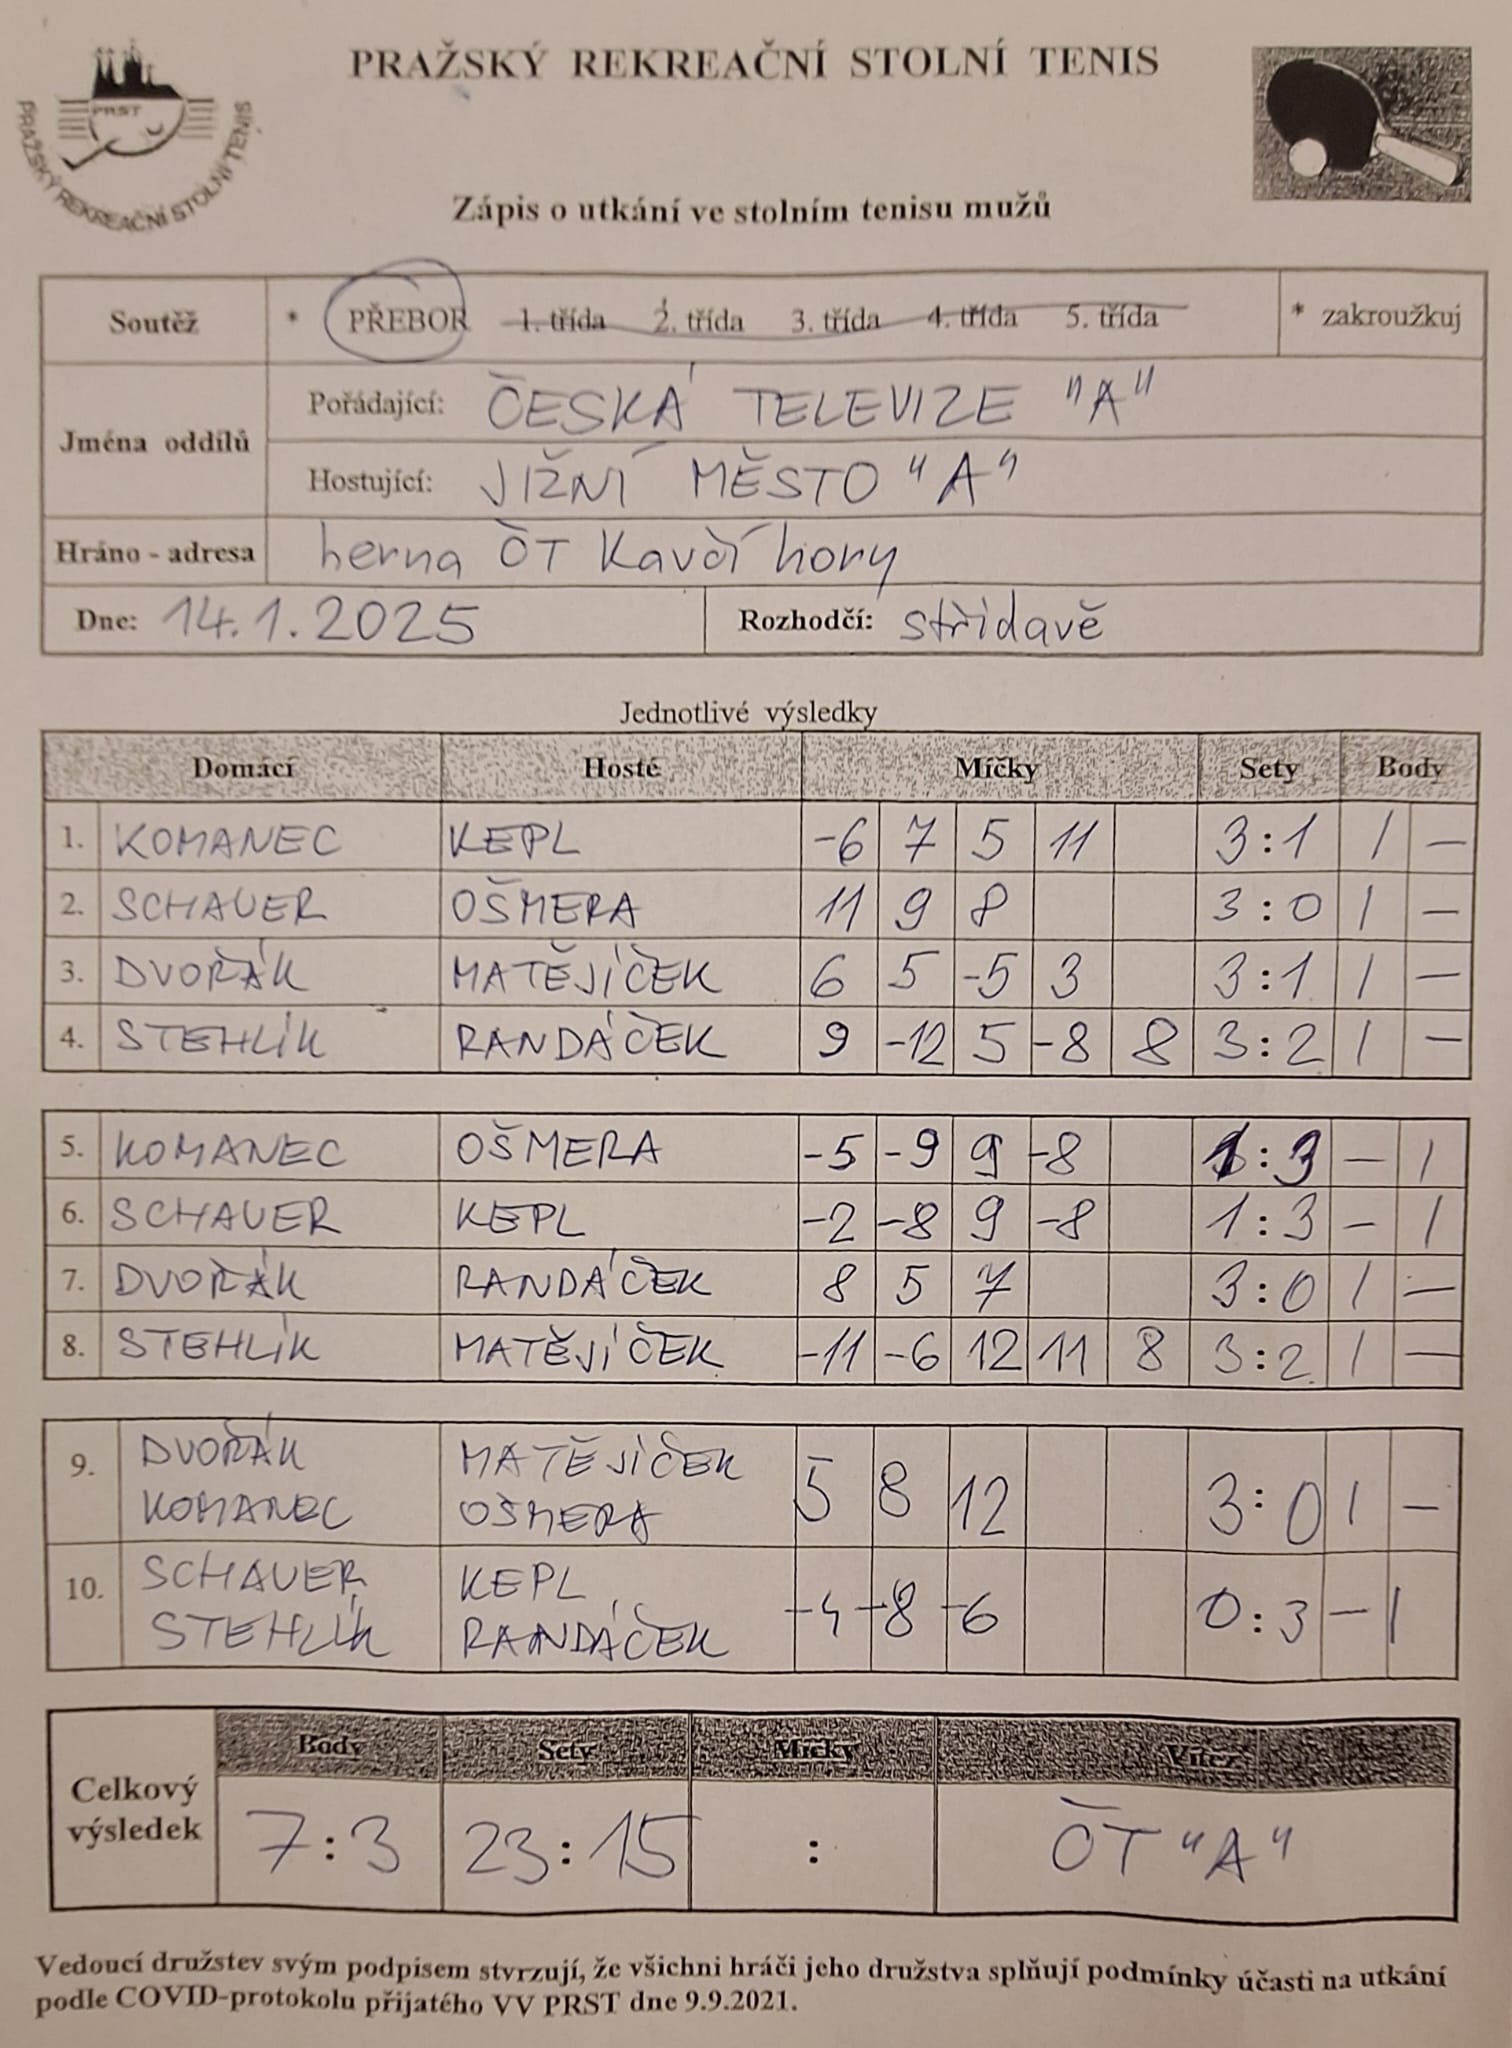 PRAŽSKÝ REKREAČNÍ STOLNÍ TENIS
PRST
PRAŽSKÝ REKREAČNÍ STOLNÍ TENIS
Zápis o utkání ve stolním tenisu mužů
Soutěž * PŘEBOR 1. třída 2. třída 3. třída 4. třída 5. třída * zakroužkuj
Jména oddílů
Pořádající: ČESKÁ TELEVIZE "A"
Hostující: JIŽNÍ MĚSTO "A"
Hráno - adresa herna ČT Kavčí hory
Dne: 14.1.2025 Rozhodčí: střídavě
Jednotlivé výsledky
Domácí Hosté Míčky Sety Body
1. KOMANEC KEPL -6 7 5 11 3:1 1 -
2. SCHAUER OŠMERA 11 9 8 3:0 1 -
3. DVOŘÁK MATĚJÍČEK 6 5 -5 3 3:1 1 -
4. STEHLÍK RANDÁČEK 9 -12 5 -8 8 3:2 1 -
5. KOMANEC OŠMERA -5 -9 9 -8 1:3 - 1
6. SCHAUER KEPL -2 -8 9 -8 1:3 - 1
7. DVOŘÁK RANDÁČEK 8 5 7 3:0 1 -
8. STEHLÍK MATĚJÍČEK -11 -6 12 11 8 3:2 1 -
9. DVOŘÁK MATĚJÍČEK 5 8 12 3:0 1 -
KOMANEC OŠMERA
10. SCHAUER KEPL -4 -8 -6 0:3 - 1
STEHLÍK RANDÁČEK
Celkový výsledek
Body Sety Míčky Vítěz
7:3 23:15 : ČT "A"
Vedoucí družstev svým podpisem stvrzují, že všichni hráči jeho družstva splňují podmínky účasti na utkání
podle COVID-protokolu přijatého VV PRST dne 9.9.2021.